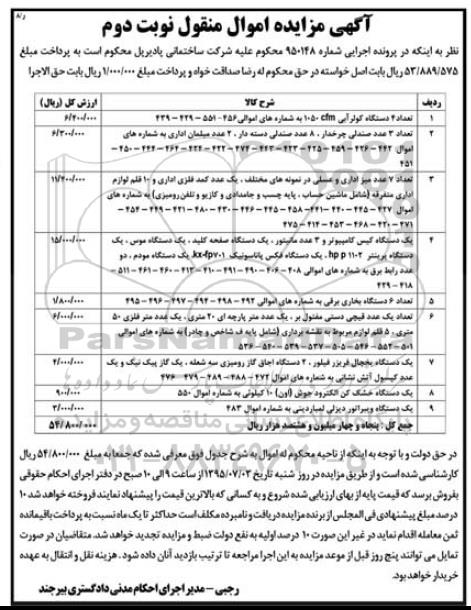 ر/۸
آگهی مزایده اموال منقول نوبت دوم
نظر به اینکه در پرونده اجرایی شماره ۹۵۰۱۴۸ محکوم علیه شرکت ساختمانی پادیرپل محکوم است به پرداخت مبلغ
۵۳/۸۸۹/۵۷۵ ریال بابت اصل خواسته در حق محکوم له رضا صداقت خواه و پرداخت مبلغ ۱/۰۰۰/۰۰۰ ریال بابت حق الاجرا
ردیف شرح کالا ارزش کل (ریال)
۱ تعداد ۴ دستگاه کولر آبی ۱۰۵۰ cfm به شماره های اموالی ۴۵۶ - ۵۵۱ - ۴۲۹ - ۴۳۹ ۶/۴۰۰/۰۰۰
۲ تعداد ۳ عدد صندلی چرخدار ، ۸ عدد صندلی دسته دار ، ۲ عدد مبلمان اداری به شماره های ۶/۳۰۰/۰۰۰
اموال ۴۴۲ - ۴۳۶ - ۴۵۹ - ۴۲۵ - ۴۳۳ - ۴۴۳ - ۴۷۴ - ۴۲۲ - ۴۳۴ - ۴۶۴ - ۴۴۴ - ۴۵۰ -
۴۵۱
۳ تعداد ۷ عدد میز اداری و عسلی در نمونه های مختلف ، یک عدد کمد فلزی اداری و ۱۰ قلم لوازم ۱۱/۴۰۰/۰۰۰
اداری متفرقه (شامل ماشین حساب ، پایه چسب و جامدادی و کازیو و تلفن رومیزی) به شماره های
اموال ۴۲۷ - ۴۴۵ - ۴۴۰ - ۴۴۱ - ۴۵۸ - ۴۴۵ - ۴۴۶ - ۴۳۰ - ۴۸۰ - ۴۲۱ - ۴۴۹ - ۴۵۴ -
۲۷۱ - ۴۲۰ - ۴۶۸ - ۴۵۳ - ۴۱۴ - ۴۷۵
۴ یک دستگاه کیس کامپیوتر و ۳ عدد مانیتور ، یک دستگاه صفحه کلید ، یک دستگاه موس ، یک ۱۵/۰۰۰/۰۰۰
دستگاه پرینتر hp p ۱۱۰۲ ، یک دستگاه فکس پاناسونیک kx-fp۷۰۱، یک دستگاه مودم ، دو
عدد رابط برق به شماره های اموالی ۴۰۸ - ۴۰۶ - ۴۹۰ - ۴۹۱ - ۴۱۰ - ۴۱۳ - ۴۶۰ - ۴۶۱ - ۵۱۱ -
۴۱۸ - ۴۲۹
۵ تعداد ۶ دستگاه بخاری برقی به شماره های اموالی ۴۹۲ - ۴۹۸ - ۴۹۴ - ۴۹۷ - ۴۹۶ - ۴۹۵ ۱/۸۰۰/۰۰۰
۶ تعداد یک عدد قیچی دستی مفتول بر ، یک عدد متر پارچه ای ۲۰ متری ، یک عدد متر فلزی ۵۰ ۶/۰۰۰/۰۰۰
متری ، ۵ قلم لوازم مربوط به نقشه برداری (شامل پایه ف شاخص و چادر) به شماره های اموالی
۵۰۱ - ۵۵۲ - ۵۴۶ - ۵۰۵ - ۵۳۷ - ۵۳۹ - ۵۴۰ - ۵۳۶
۷ یک دستگاه یخچال فریزر فیلور ، ۲ دستگاه اجاق گاز رومیزی سه شعله ، یک گاز پیک نیک و یک ۴/۰۰۰/۰۰۰
عدد کپسول آتش نشانی به شماره های اموال ۴۷۲ - ۴۸۸ - ۴۸۹ - ۴۷۹ - ۴۷۶
۸ یک دستگاه خشک کن الکترود جوش (آون) ۱۰ کیلوئی به شماره اموال ۵۵۰ ۹۰۰/۰۰۰
۹ یک دستگاه ویبراتور دیزلی لمباردینی به شماره اموال ۴۸۳ ۳/۰۰۰/۰۰۰
جمع کل : پنجاه و چهار میلیون و هشتصد هزار ریال ۵۴/۸۰۰/۰۰۰
در حق دولت و با توجه به اینکه از ناحیه محکوم له اموال به شرح جدول فوق معرفی شده که جمعا به مبلغ ۵۴/۸۰۰/۰۰۰ ریال
کارشناسی شده است و از طریق مزایده در روز شنبه تاریخ ۱۳۹۵/۰۷/۰۳ از ساعت ۹ الی ۱۰ صبح در دفتر اجرای احکام حقوقی
بفروش برسد که قیمت پایه از بهای ارزیابی شده شروع و به کسانی که بالاترین قیمت را پیشنهاد نمایند فروخته خواهد شد ۱۰
درصد مبلغ پیشنهادی فی المجلس از برنده مزایده دریافت و نامبرده مکلف است حداکثر تا یک ماه نسبت به پرداخت باقیمانده
ثمن معامله اقدام نماید در غیر این صورت ۱۰ درصد اولیه به نفع دولت ضبط و مزایده تجدید خواهد شد. متقاضیان در صورت
تمایل می توانند پنج روز قبل از موعد مزایده به این اجرا مراجعه تا ترتیب بازدید آنان داده شود . هزینه نقل و انتقال به عهده
خریدار خواهد بود.
رجبی - مدیر اجرای احکام مدنی دادگستری بیرجند